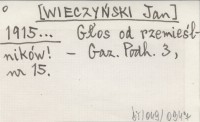 [WIECZYŃSKI Jan]
1915... Głos od rzemieśl-
ników! - Gaz. Podh. 3,
nr 15.